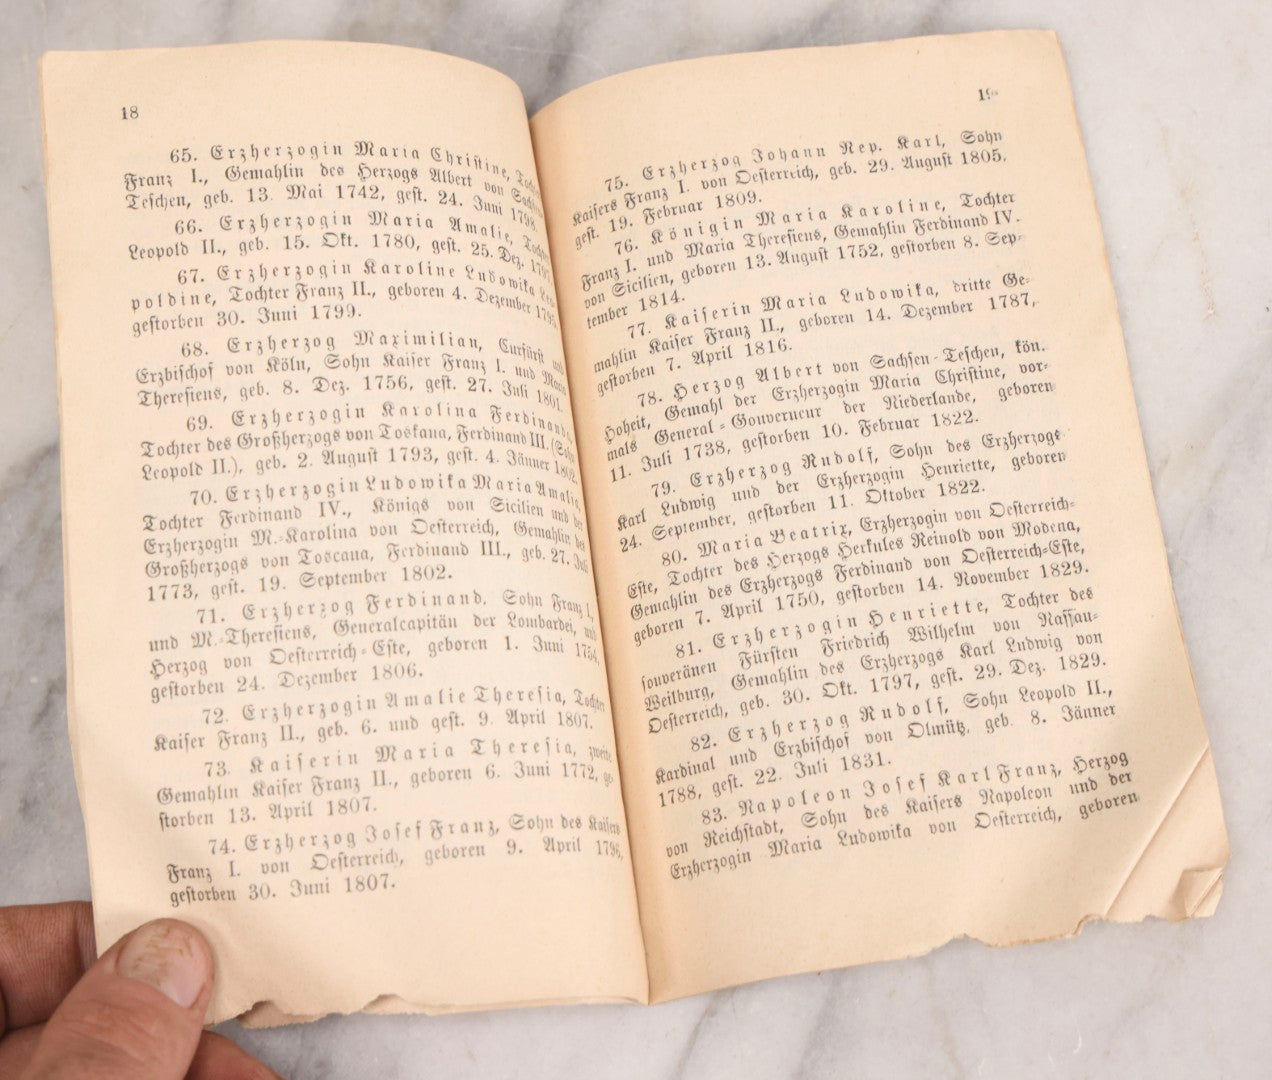 18
65. Erzherzogin Maria Christine, Tochter
Franz I., Gemahlin des Herzogs Albert von Sachsen
Teschen, geb. 13. Mai 1742, gest. 24. Juni 1798.
66. Erzherzogin Maria Amalie, Tochter
Leopold II., geb. 15. Okt. 1780, gest. 25. Dez.
67. Erzherzogin Karoline Ludowika Leo-
poldine, Tochter Franz II., geboren 4. Dezember 1795,
gestorben 30. Juni 1799.
68. Erzherzog Maximilian, Curfürst und
Erzbischof von Köln, Sohn Kaiser Franz I. und Maria
Theresiens, geb. 8. Dez. 1756, gest. 27. Juli 1801.
69. Erzherzogin Karolina Ferdinanda,
Tochter des Großherzogs von Toskana, Ferdinand III. (Sohn
Leopold II.), geb. 2. August 1793, gest. 4. Jänner 1802.
70. Erzherzogin Ludowika Maria Amalia,
Tochter Ferdinand IV., Königs von Sicilien und der
Erzherzogin M.-Karolina von Oesterreich, Gemahlin des
Großherzogs von Toscana, Ferdinand III., geb. 27. Juli
1773, gest. 19. September 1802.
71. Erzherzog Ferdinand, Sohn Franz I.,
und M.-Theresiens, Generalcapitän der Lombardei, und
Herzog von Oesterreich-Este, geboren 1. Juni 1754,
gestorben 24. Dezember 1806.
72. Erzherzogin Amalie Theresia, Tochter
Kaiser Franz II., geb. 6. und gest. 9. April 1807.
73. Kaiserin Maria Theresia, zweite
Gemahlin Kaiser Franz II., geboren 6. Juni 1772, ge-
storben 13. April 1807.
74. Erzherzog Josef Franz, Sohn des Kaisers
Franz I. von Oesterreich, geboren 9. April 1796,
gestorben 30. Juni 1807.
19
75. Erzherzog Johann Nep. Karl, Sohn
Kaisers Franz I. von Oesterreich, geb. 29. August 1805,
gest. 19. Februar 1809.
76. Königin Maria Karoline, Tochter
Franz I. und Maria Theresiens, Gemahlin Ferdinand IV.
von Sicilien, geboren 13. August 1752, gestorben 8. Sep-
tember 1814.
77. Kaiserin Maria Ludowika, dritte Ge-
mahlin Kaiser Franz II., geboren 14. Dezember 1787,
gestorben 7. April 1816.
78. Herzog Albert von Sachsen-Teschen, kön.
Hoheit, Gemahl der Erzherzogin Maria Christine, vor-
mals General-Gouverneur der Niederlande, geboren
11. Juli 1738, gestorben 10. Februar 1822.
79. Erzherzog Rudolf, Sohn des Erzherzogs
Karl Ludwig und der Erzherzogin Henriette, geboren
24. September, gestorben 11. Oktober 1822.
80. Maria Beatrix, Erzherzogin von Oesterreich-
Este, Tochter des Herzogs Herkules Reinold von Modena,
Gemahlin des Erzherzogs Ferdinand von Oesterreich-Este,
geboren 7. April 1750, gestorben 14. November 1829.
81. Erzherzogin Henriette, Tochter des
souveränen Fürsten Friedrich Wilhelm von Nassau-
Weilburg, Gemahlin des Erzherzogs Karl Ludwig von
Oesterreich, geb. 30. Okt. 1797, gest. 29. Dez. 1829.
82. Erzherzog Rudolf, Sohn Leopold II.,
Kardinal und Erzbischof von Olmütz, geb. 8. Jänner
1788, gest. 22. Juli 1831.
83. Napoleon Josef Karl Franz, Herzog
von Reichstadt, Sohn des Kaisers Napoleon und der
Erzherzogin Maria Ludowika von Oesterreich, geboren